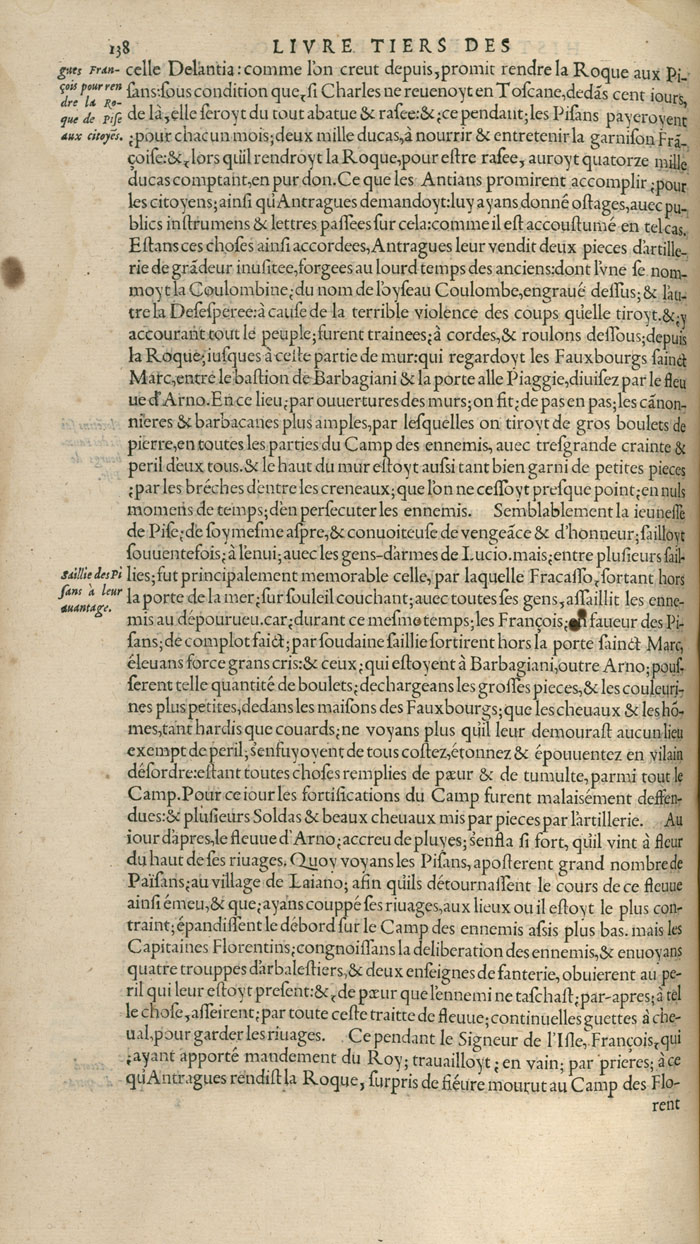 138 LIVRE TIERS DES
gues Fran-
çois pour ren
dre la Ro-
que de Pise
aux citoyẽs.
celle Delantia: comme l'on creut depuis, promit rendre la Roque aux Pi-
sans: sous condition que, si Charles ne reuenoyt en Toscane, dedãs cent iours,
de là, elle seroyt du tout abatue & rasee: &, ce pendant; les Pisans payeroyent
; pour chacun mois; deux mille ducas, à nourrir & entretenir la garnison Frã-
çoise: &, lors qu'il rendroyt la Roque, pour estre rasee, auroyt quatorze mille
ducas comptant, en pur don. Ce que les Antians promirent accomplir; pour
les citoyens; ainsi qu'Antragues demandoyt: luy ayans donné ostages, auec pu-
blics instrumens & lettres passées sur cela: comme il est accoustumé en tel cas.
Estans ces choses ainsi accordees, Antragues leur vendit deux pieces d'artille-
rie de grãdeur inusitee, forgees au lourd temps des anciens: dont l'vne se nom-
moyt la Coulombine; du nom de l'oyseau Coulombe, engraué dessus; & l'au-
tre la Desesperee: à cause de la terrible violence des coups qu'elle tiroyt. &; y
accourant tout le peuple; furent trainees; à cordes, & roulons dessous; depuis
la Roque; iusques à ceste partie de mur: qui regardoyt les Fauxbourgs sainct
Marc, entre le bastion de Barbagiani & la porte alle Piaggie, diuisez par le fleu
ue d'Arno. En ce lieu; par ouuertures des murs; on fit; de pas en pas; les cãnon-
nieres & barbacanes plus amples, par lesquelles on tiroyt de gros boulets de
pierre, en toutes les parties du Camp des ennemis, auec tresgrande crainte &
peril d'eux tous. & le haut du mur estoyt aussi tant bien garni de petites pieces
; par les bréches d'entre les creneaux; que l'on ne cessoyt presque point; en nuls
momens de temps; d'en persecuter les ennemis. Semblablement la ieunesse
de Pise; de soy mesme aspre, & conuoiteuse de vengeãce & d'honneur; sailloyt
souuentefois; à l'enui; auec les gens-d'armes de Lucio. mais; entre plusieurs sail-
Saillie des Pi
sans à leur
auantage.
lies; fut principalement memorable celle, par laquelle Fracasso, sortant hors
la porte de la mer; sur souleil couchant; auec toutes ses gens, assaillit les enne-
mis au dépourueu. car; durant ce mesme temps; les François; faueur des Pi-
sans; de complot faict; par soudaine saillie sortirent hors la porte sainct Marc,
éleuans force grans cris: & ceux; qui estoyent à Barbagiani, outre Arno; pous-
serent telle quantité de boulets; dechargeans les grosses pieces, & les couleuri-
nes plus petites, dedans les maisons des Fauxbourgs; que les cheuaux & les hõ-
mes, tant hardis que couards; ne voyans plus qu'il leur demourast aucun lieu
exempt de peril; s'enfuyoyent de tous costez, étonnez & épouuentez en vilain
désordre: estant toutes choses remplies de pæur & de tumulte, parmi tout le
Camp. Pour ce iour les fortifications du Camp furent malaisément deffen-
dues: & plusieurs Soldas & beaux cheuaux mis par pieces par l'artillerie. Au
iour d'apres, le fleuue d'Arno; accreu de pluyes; s'enfla si fort, qu'il vint à fleur
du haut de ses riuages. Quoy voyans les Pisans, aposterent grand nombre de
Païsans; au village de Laiano; afin qu'ils détournassent le cours de ce fleuue
ainsi émeu, & que; ayans couppé ses riuages, aux lieux ou il estoyt le plus con-
traint; épandissent le débord sur le Camp des ennemis assis plus bas. mais les
Capitaines Florentins; congnoissans la deliberation des ennemis, & enuoyans
quatre trouppes d'arbalestiers, & deux enseignes de fanterie, obuierent au pe-
ril qui leur estoyt present: &, de pæur que l'ennemi ne taschast; par-apres; à tel
le chose, asseirent; par toute ceste traitte de fleuue; continuelles guettes à che-
ual, pour garder les riuages. Ce pendant le Signeur de l'Isle, François, qui
; ayant apporté mandement du Roy; trauailloyt; en vain; par prieres; à ce
qu'Antragues rendist la Roque, surpris de fiéure mourut au Camp des Flo-
rent